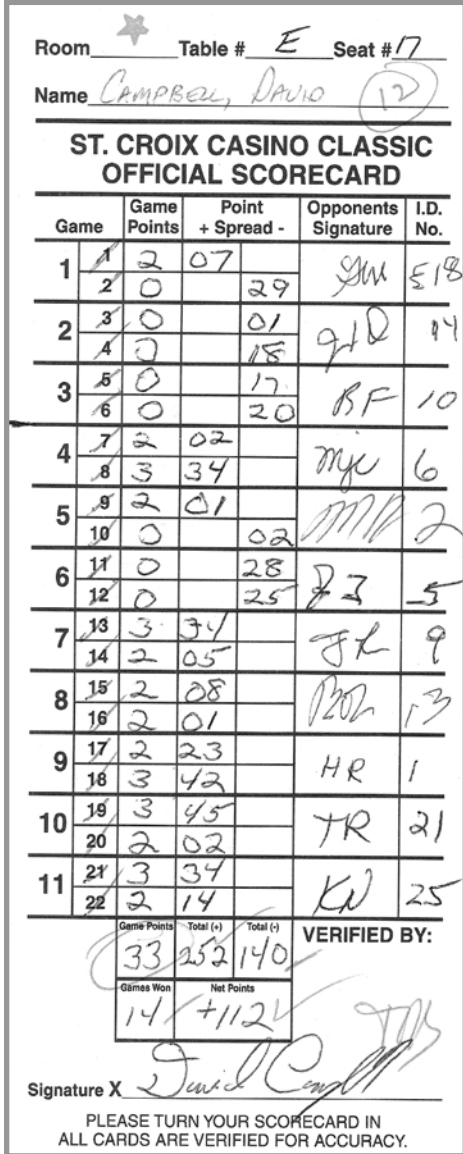 Room Table # E Seat # 17
Name CAMPBELL, DAVID 12
ST. CROIX CASINO CLASSIC
OFFICIAL SCORECARD
Game Game Points Point + Spread - Opponents Signature I.D. No.
1 1 2 07 E18
2 0 29
2 3 0 01 14
4 0 18
3 5 0 17 BF 10
6 0 20
4 7 2 02 mjc 6
8 3 34
5 9 2 01 2
10 0 02
6 11 0 28 5
12 0 25
7 13 3 34 JR 9
14 2 05
8 15 2 08 13
16 2 01
9 17 2 23 HR 1
18 3 42
10 19 3 45 TR 21
20 2 02
11 21 3 34 KN 25
22 2 14
Game Points Total (+) Total (-) VERIFIED BY:
33 252 140
Games Won Net Points
14 +112
Signature X David Campbell
PLEASE TURN YOUR SCORECARD IN
ALL CARDS ARE VERIFIED FOR ACCURACY.